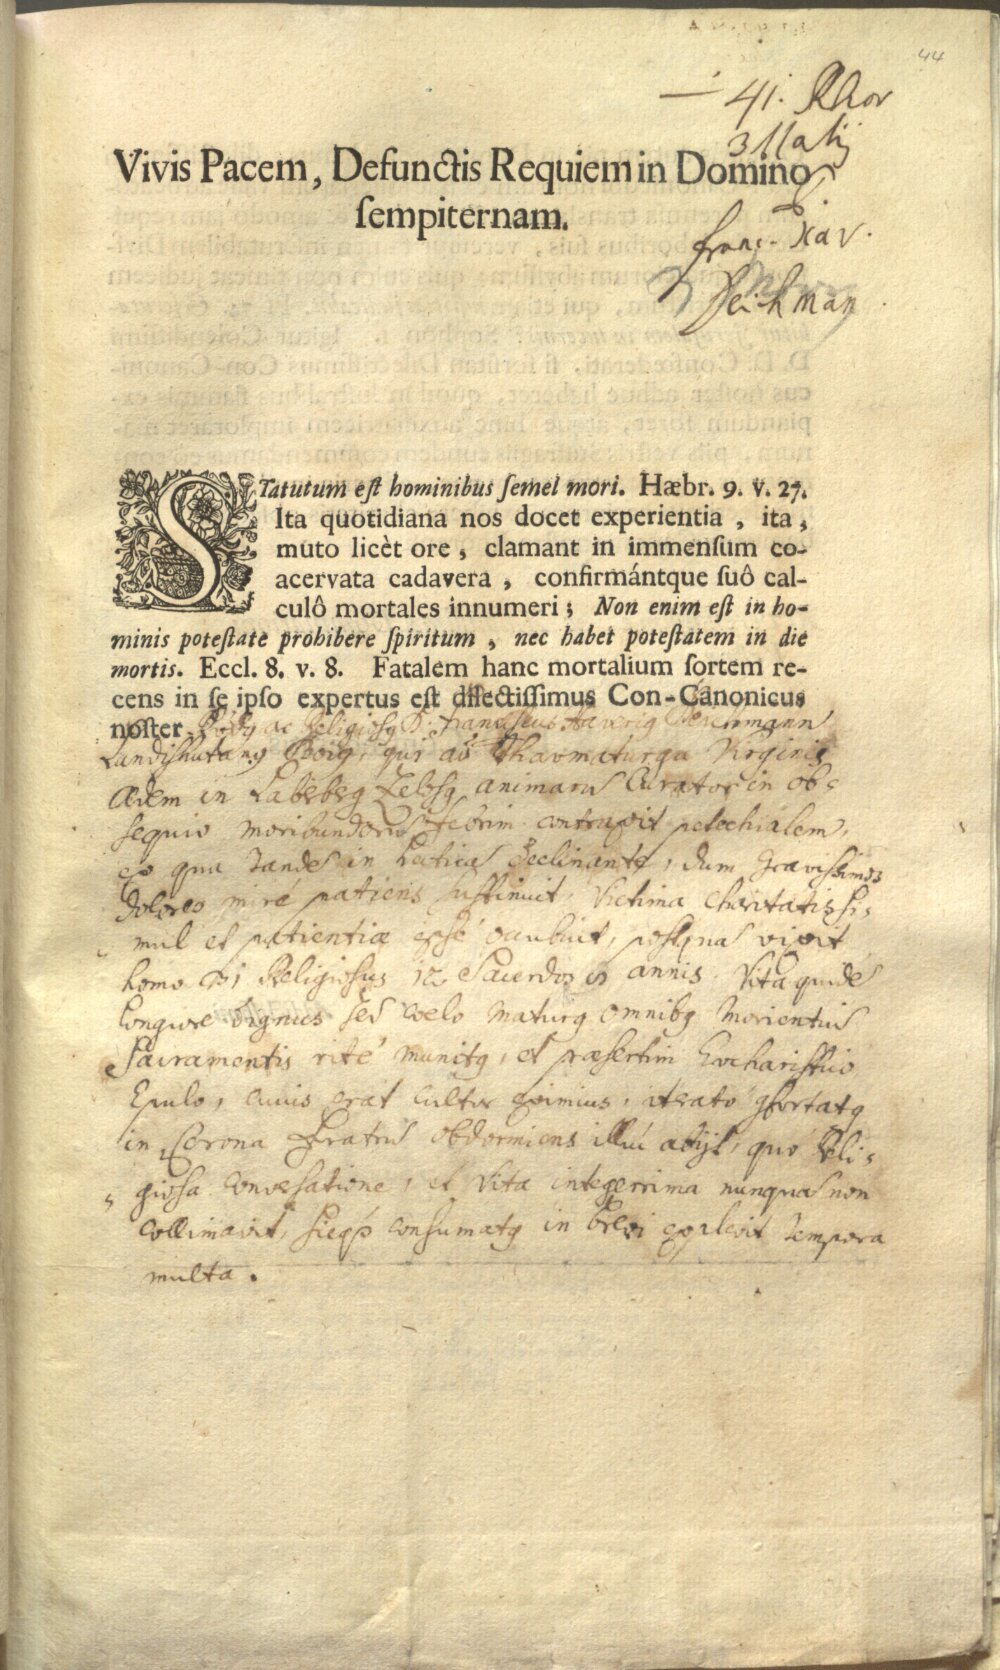 44
41. Rhor
3 Maij
Vivis Pacem, Defunctis Requiem in Domino
ſempiternam.
Franc. Xav.
Deichman
STatutum eſt hominibus ſemel mori. Hæbr. 9. v. 27.
Ita quotidiana nos docet experientia, ita,
muto licèt ore, clamant in immenſum co-
acervata cadavera, confirmántque ſuô cal-
culô mortales innumeri; Non enim eſt in ho-
minis poteſtate prohibere ſpiritum, nec habet poteſtatem in die
mortis. Eccl. 8. v. 8. Fatalem hanc mortalium ſortem re-
cens in ſe ipſo expertus eſt dilectiſſimus Con-Canonicus
noſter ac Religiosg D. Franciscus Xaverig
Landishutang qui ad Thaumaturga Virginis
Ædem in Zelosg animarũ Curator in ob=
sequio moribundorũ febrim contraxit petechialem,
ex qua tandẽ in declinante, dum gravissimos
dolores mire patiens sustinuit, Victima Charitatis si=
mul et patientiæ occubuit, postquã vixit
homo Religiosus 12 Sacerdos annis. Vita quidẽ
longiore dignus sed coelo maturg omnibg Morientiũ
Sacramentis rité munitg, et præsertim Eucharistico
Epulo, cuius erat cultor eximius, iterato confortatg
in Corona Fratrũ obdormiens illuc abijt, quo Reli=
giosa conversatione, et vita integerrima nunquã non
collimavit, sicq consumatg in brevi explevit tempora
multa.